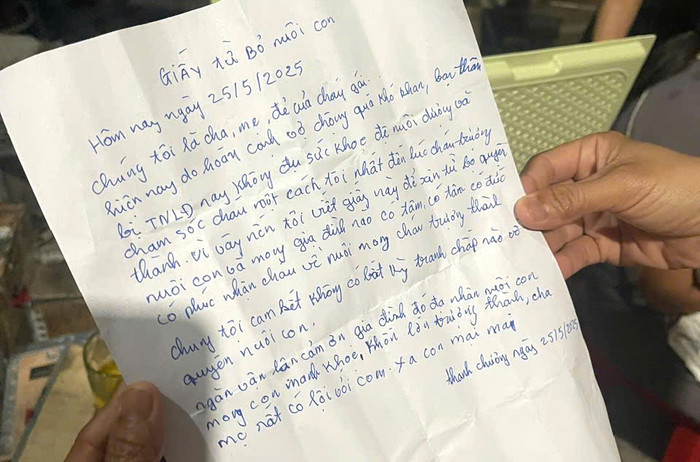 GIẤY TỪ BỎ NUÔI CON
Hôm nay ngày 25/5/2025
chúng tôi là cha, mẹ, đẻ của cháu gái.
hiện nay do hoàn cảnh vợ chồng quá khó khăn, bạn thân
bị TNLĐ nay không đủ sức khoẻ để nuôi dưỡng và
chăm sóc cháu một cách tôi nhất đến lúc cháu trưởng
thành. Vì vậy nên tôi viết giấy này để xin từ bỏ quyền
nuôi con và mong gia đình nào có tâm, có tâm có đức
có phúc nhận cháu về nuôi mong cháu trưởng thành
chúng tôi cam kết không có bất kỳ tranh chấp nào về
quyền nuôi con.
ngàn vân lần cảm ơn gia đình đó đa nhận nuôi con
mong con mạnh khoẻ, khôn lớn trưởng thành, cha
mẹ rất có lỗi với con. xa con mãi mãi
thanh chương ngày 25/5/2025